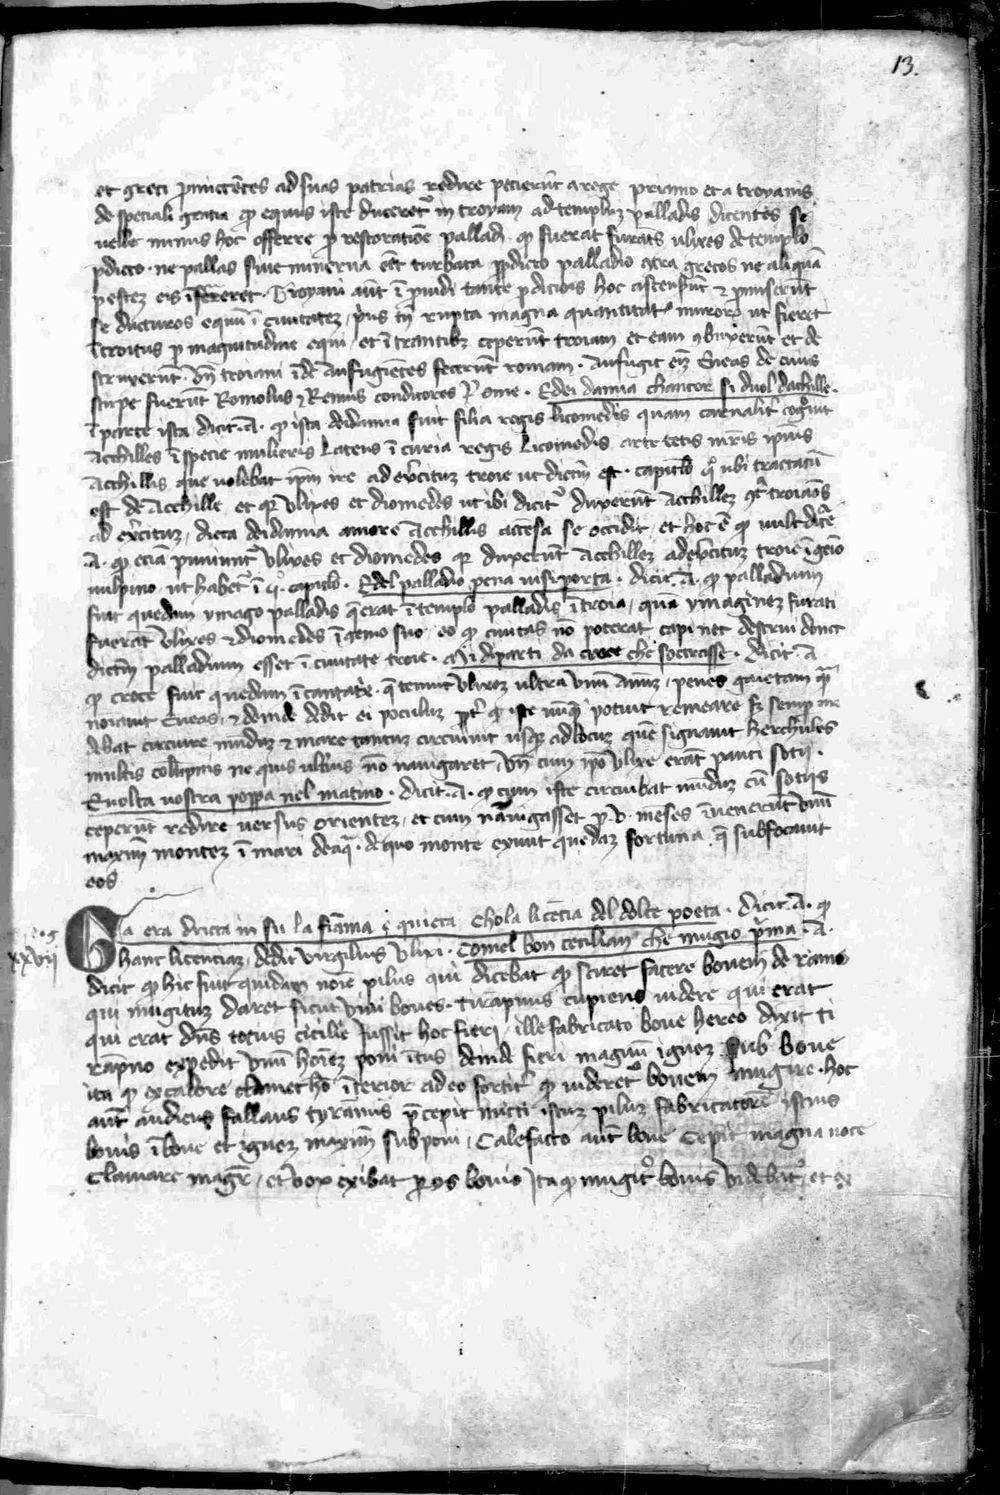 13.
et greci promictētes ad suas patrias redire petierūt a rege priamo et a troyanis
de speciali gratia qp equus iste duceretr in troyam ad templuz palladis dicentes se
uelle munus hoc offerre p restoratiōe pallad. qp fuerat furats ulixes de templo
pdicto. ne pallas siue minerua eēt turbata pdicto palladio ɔtra grecos ne aliquā
pestez eis īferreret. Troyani aūt ī prouidi tante pdictiōis hoc ascenserūt et pmiserūt
se ducturos equū ī ciuitatez, prius tn̄ rupta magna quantitate muror ut fieret
ītroitus p magnitudine equi, et ī trantibz ceperūt troiam et eam ɔbuxerūt et de
struxerūt. Dn̄ troiani īde Aufugiētes fecerūt romam. Aufugit eīz Eneas de cuius
stirpe fuerūt Romolus et Remus conditores Rome. E dei damia chancor si duol dachille.
ī parte ista dicit. A. qp ista deidamia fuit filia regis licomedis quam carnalit cogouit
Acchilles ī specie mulieris Latens ī curia regis Licomedis arte tetis mr̄is ipīus
Acchillis que nolebat ipm ire ad exercituz troie ut dictm est. capitulo ubi tractatū
est de Acchille, et qr Ulixes et diomedes ut ibi dicitr duxerūt Acchillez ɔtra troianos
ad exercituz, dicta deidamia amore Acchillis accesa se occidit, et hoc ē qp uult dicē
.A. qp etiā puniunt Ulixes et diomedes qr duxerūt Acchillez ad exercituz troie īgeīo
uulpino, ut habetr ī capitulo. E del palladio pena uisi porta. dicit. A. qp palladium
fuit quedam ymago palladis q erat ī templo palladis ī troia, quā ymaginez furati
fuerāt Ulixes et diomedes īgenio suo, eo qp ciuitas nō poterat capi nec destrui donec
dictm palladium esset ī ciuitate troie. Mi diparti da croce che soctrasse. dicit. A.
qp croce fuit quedam īcantatx. q tenuit Ulixez ultra Unū Annuz, penes gaietam qm
noīauit Eneas, et deinde dedit ei poculuz ppt qp iste nūqz potuit remeare sz semp
debat circuire mūduz et mare tantuz circuiuit usqz ad locuz quē signauit herchules
multis collupnis ne quis ulterius nō nauigaret, Un̄ cum ipo Ulixe erāt pauci sotii.
E uolta nostra poppa nel matino. dicit. A. qp cym iste circuibat mūduz cū sotiis
ceperūt redire uersus orientez, et cum nauigasset p .V. mēses īuenerūt Unū
maxim̄ montez ī mari deaq. de quo monte exiuit quedaz fortuna q subfocauit
eos
cap
xxvii
Gia era dricta in su la fiāma e quieta Chola licētia del dolce poeta. dicit. A. qp
hanc licentiaz, dedit Uirgilius Ulixi. Comel bon cecilian che mugio prima. A.
dicit qp hic fuit quidam noīe pilus qui dicebat qp sciret facere bouem de ramo
qui mugituz daret sicut Uiui boues. Tirampnus cupiens uidere qui erat
qui erat dn̄s totius cicilie Jussit hoc fieri, ille fabricato boue hereo dixit ti
rāpno expedit Unū hoīez poni ītus deinde fieri magnū ignez Sub boue
ita qp ex calore clamet ho īterior adeo fortit qp uideretr bouem mugire. hoc
aūt audiens fallaus tyrāmus pcepit micti istuz piluz fabricatorē istius
bouis ī boue et ignez maxim̄ subponi, Calefacto aūt boue Cepit magna uoce
Clamare magr, et Vox exibat p os bouis Ita qp mugitr bouis Uidebatr, et